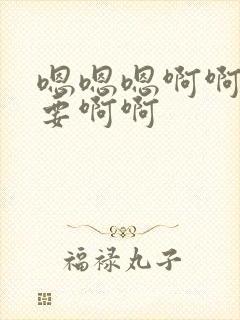 嗯嗯嗯啊啊
要啊啊
福禄丸子